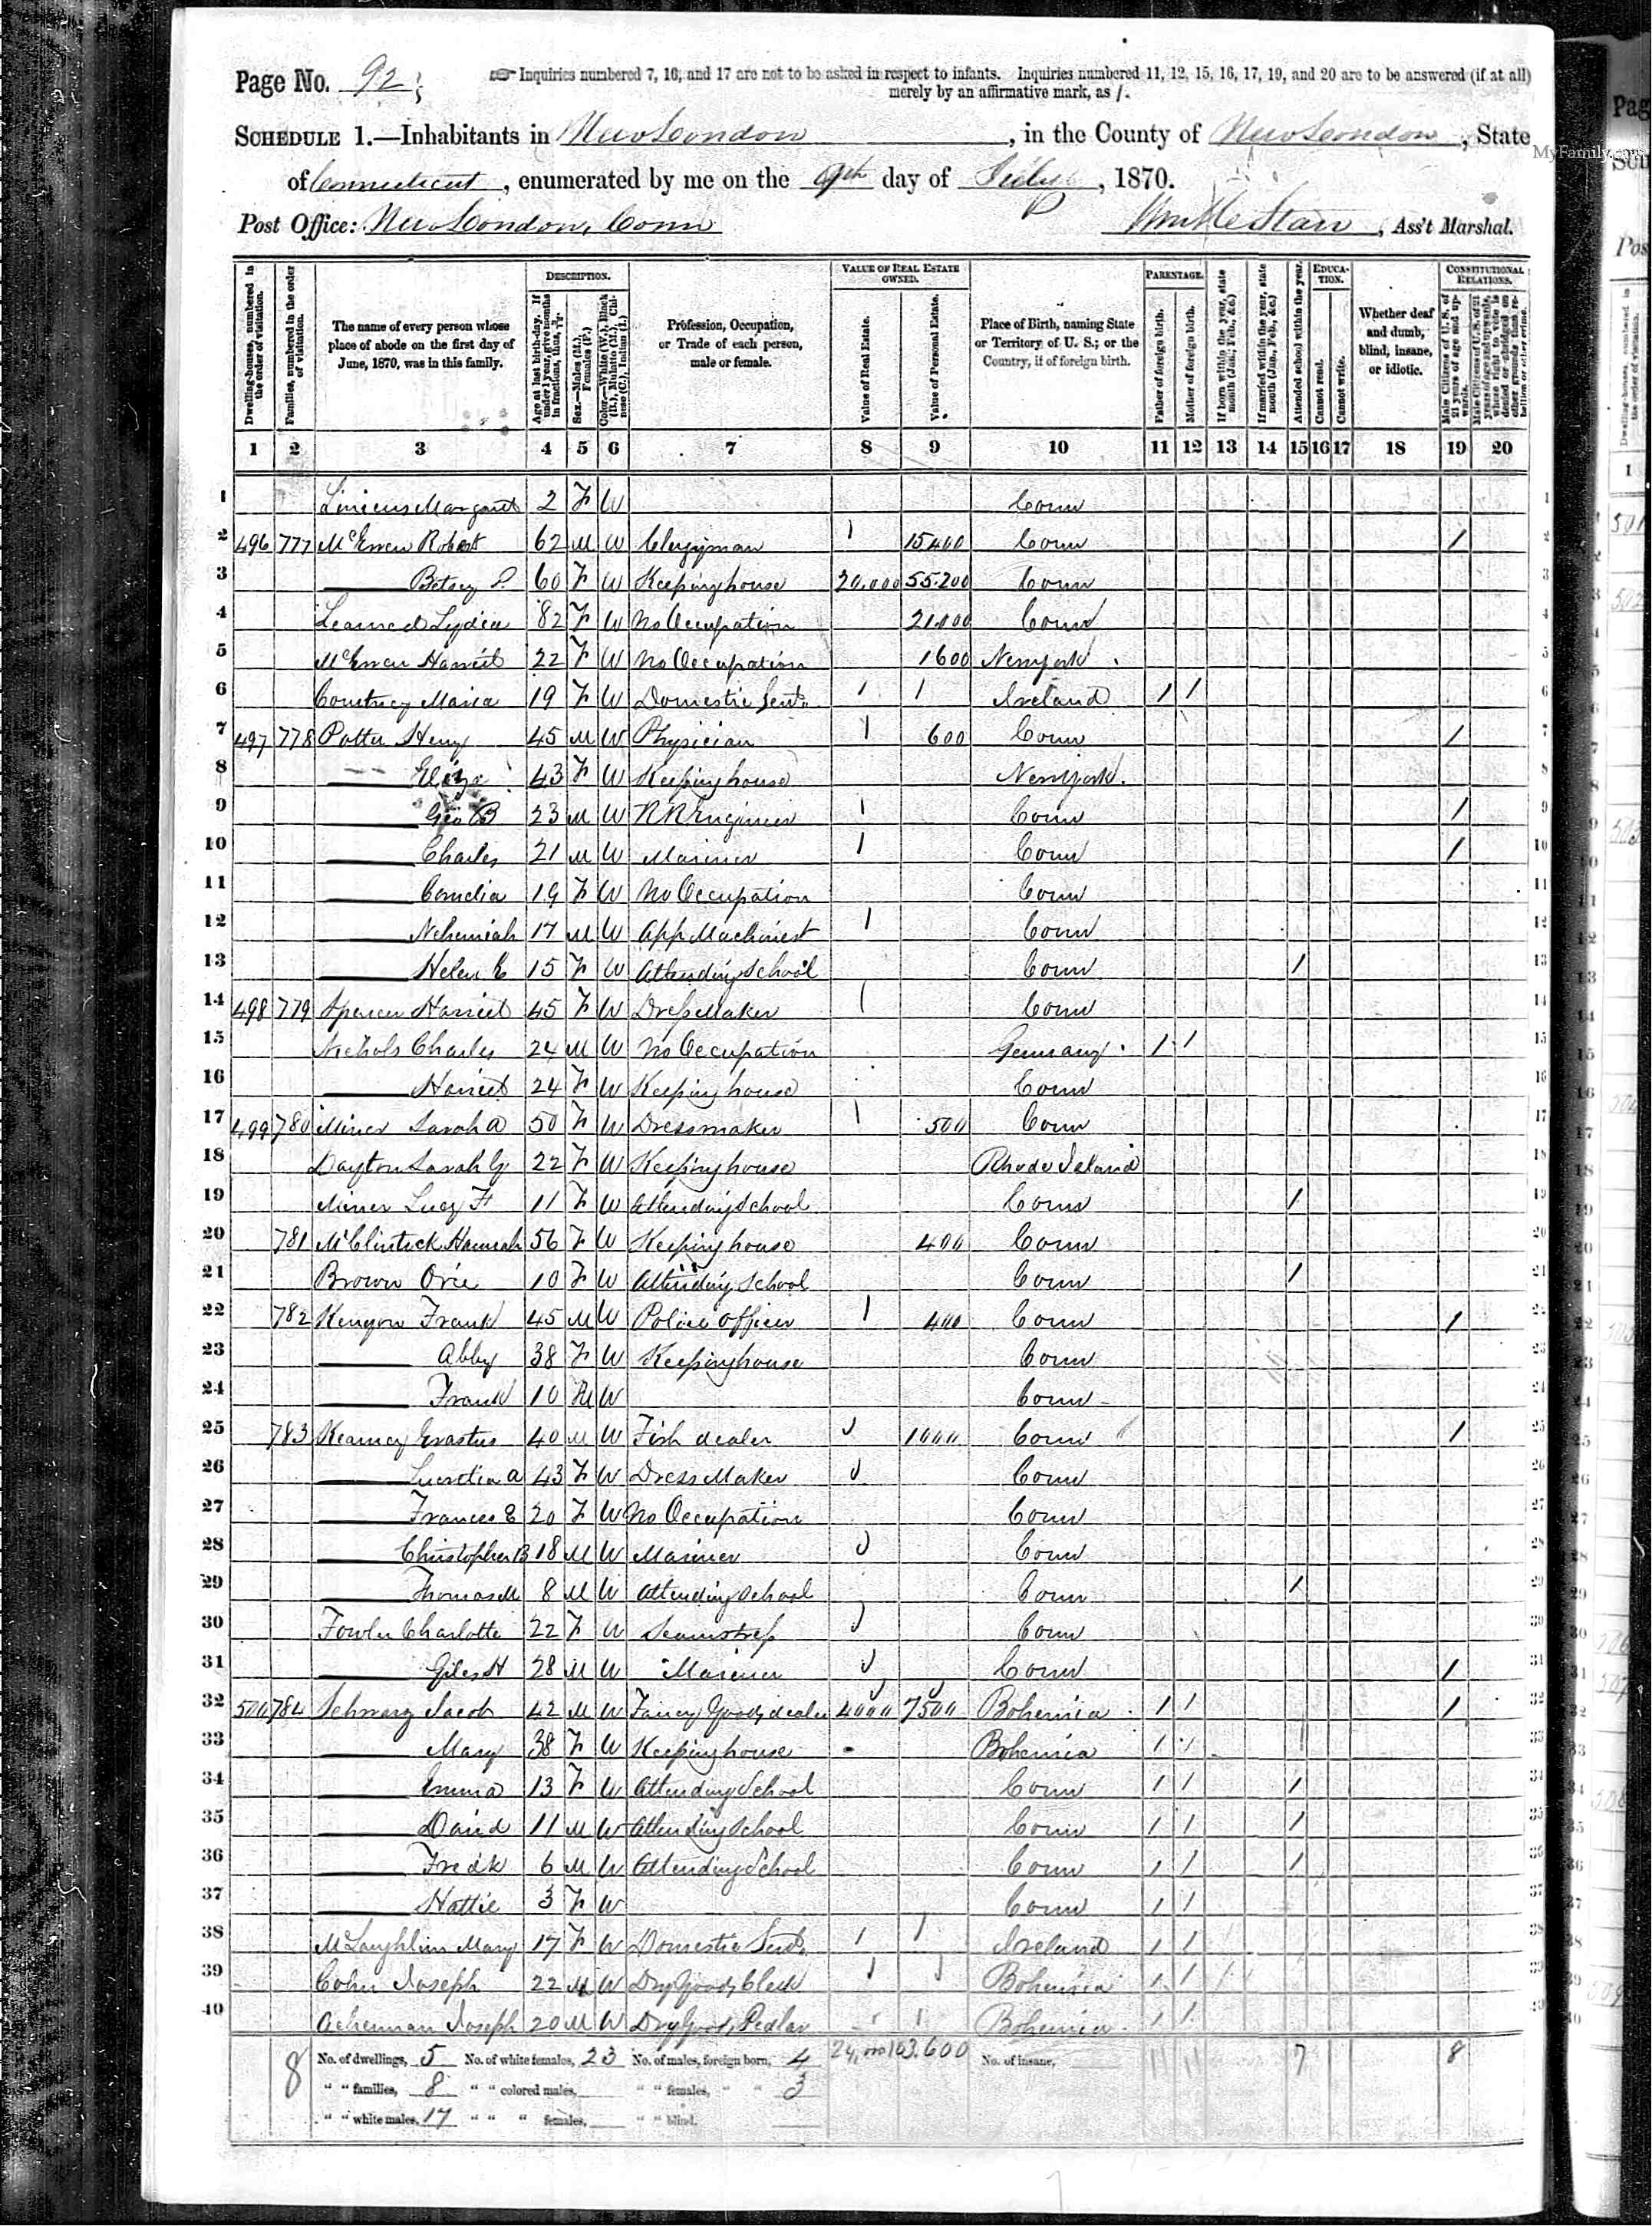 Page No. 92
Inquiries numbered 7, 16, and 17 are not to be asked in respect to infants. Inquiries numbered 11, 12, 15, 16, 17, 19, and 20 are to be answered (if at all)
merely by an affirmative mark, as /.
SCHEDULE 1.—Inhabitants in New London, in the County of New London, State
MyFamily.com
of Connecticut, enumerated by me on the 9th day of July, 1870.
Post Office: New London, Conn
Starr, Ass't Marshal.
Dwelling-houses, numbered in the order of visitation.
Families, numbered in the order of visitation.
The name of every person whose place of abode on the first day of June, 1870, was in this family.
DESCRIPTION.
Age at last birth-day. If under 1 year, give months in fractions, thus,
Sex.—Males (M.), Females (F.)
Color.—White (W.), Black (B.), Mulatto (M.), Chinese (C.), Indian (I.)
Profession, Occupation, or Trade of each person, male or female.
VALUE OF REAL ESTATE OWNED.
Value of Real Estate.
Value of Personal Estate.
Place of Birth, naming State or Territory of U. S.; or the Country, if of foreign birth.
PARENTAGE.
Father of foreign birth.
Mother of foreign birth.
If born within the year, state month (Jan., Feb., &c.)
If married within the year, state month (Jan., Feb., &c.)
Attended school within the year.
EDUCATION.
Cannot read.
Cannot write.
Whether deaf and dumb, blind, insane, or idiotic.
CONSTITUTIONAL RELATIONS.
Male Citizens of U. S. of 21 years of age and upwards.
Male Citizens of U. S. of 21 years of age and upwards, whose right to vote is denied or abridged on other grounds than rebellion or other crime.
1 2 3 4 5 6 7 8 9 10 11 12 13 14 15 16 17 18 19 20
1 Margaret 2 F W Conn 1
2 496 777 McEwen Robert 62 M W Clergyman / 15400 Conn / 2
3 —— Betsey P. 60 F W Keeping house 20,000 55,200 Conn 3
4 Learned Lydia 82 F W No Occupation 21000 Conn 4
5 McEwen Harriet 22 F W No Occupation 1600 New York 5
6 Courtney Maria 19 F W Domestic Servt / / Ireland / / 6
7 497 778 Potter Henry 45 M W Physician / 600 Conn / 7
8 —— Eliza 43 F W Keeping house New York. 8
9 —— Geo B 23 M W R R Engineer / Conn / 9
10 —— Charles 21 M W Mariner / Conn / 10
11 —— Cornelia 19 F W No Occupation Conn 11
12 —— Nehemiah 17 M W App Machinest / Conn 12
13 —— Helen E 15 F W Attending School Conn / 13
14 498 779 Spencer Harriet 45 F W Dress Maker / Conn 14
15 Nichols Charles 24 M W No Occupation Germany / / 15
16 —— Harriet 24 F W Keeping house Conn 16
17 499 780 Miner Sarah A 50 F W Dressmaker / 500 Conn 17
18 Dayton Sarah G 22 F W Keeping house Rhode Island 18
19 Miner Lucy F 11 F W Attending School Conn / 19
20 781 McClintock Hannah 56 F W Keeping house 400 Conn 20
21 Brown Orie 10 F W Attending School Conn / 21
22 782 Kenyon Frank 45 M W Police Officer / 400 Conn / 22
23 —— Abby 38 F W Keeping house Conn 23
24 —— Frank 10 M W Conn 24
25 783 Kearney Erastus 40 M W Fish dealer / 1000 Conn / 25
26 —— Lucretia A 43 F W Dress Maker / Conn 26
27 —— Frances E 20 F W No Occupation Conn 27
28 —— Christopher B 18 M W Mariner / Conn 28
29 —— Thomas M 8 M W Attending School Conn / 29
30 Fowler Charlotte 22 F W Seamstress / Conn 30
31 —— Giles H 28 M W Mariner / Conn / 31
32 500 784 Schwarz Jacob 42 M W Fancy Goods dealer 4000 7500 Bohemia / / / 32
33 —— Mary 38 F W Keeping house Bohemia / / 33
34 —— Emma 13 F W Attending School Conn / / / 34
35 —— David 11 M W Attending School Conn / / / 35
36 —— Fredk 6 M W Attending School Conn / / / 36
37 —— Hattie 3 F W Conn / / 37
38 McLaughlin Mary 17 F W Domestic Servt / / Ireland / / 38
39 Cohn Joseph 22 M W Dry Goods Clerk / / Bohemia / / 39
40 Ackerman Joseph 20 M W Dry Goods Pedlar / / Bohemia / / 40
8 No. of dwellings, 5 No. of white females, 23 No. of males, foreign born, 4 24,000 103.600 No. of insane, 7 8
" " families, 8 " " colored males, " " females, " " 3
" " white males, 17 " " " females, " " blind.